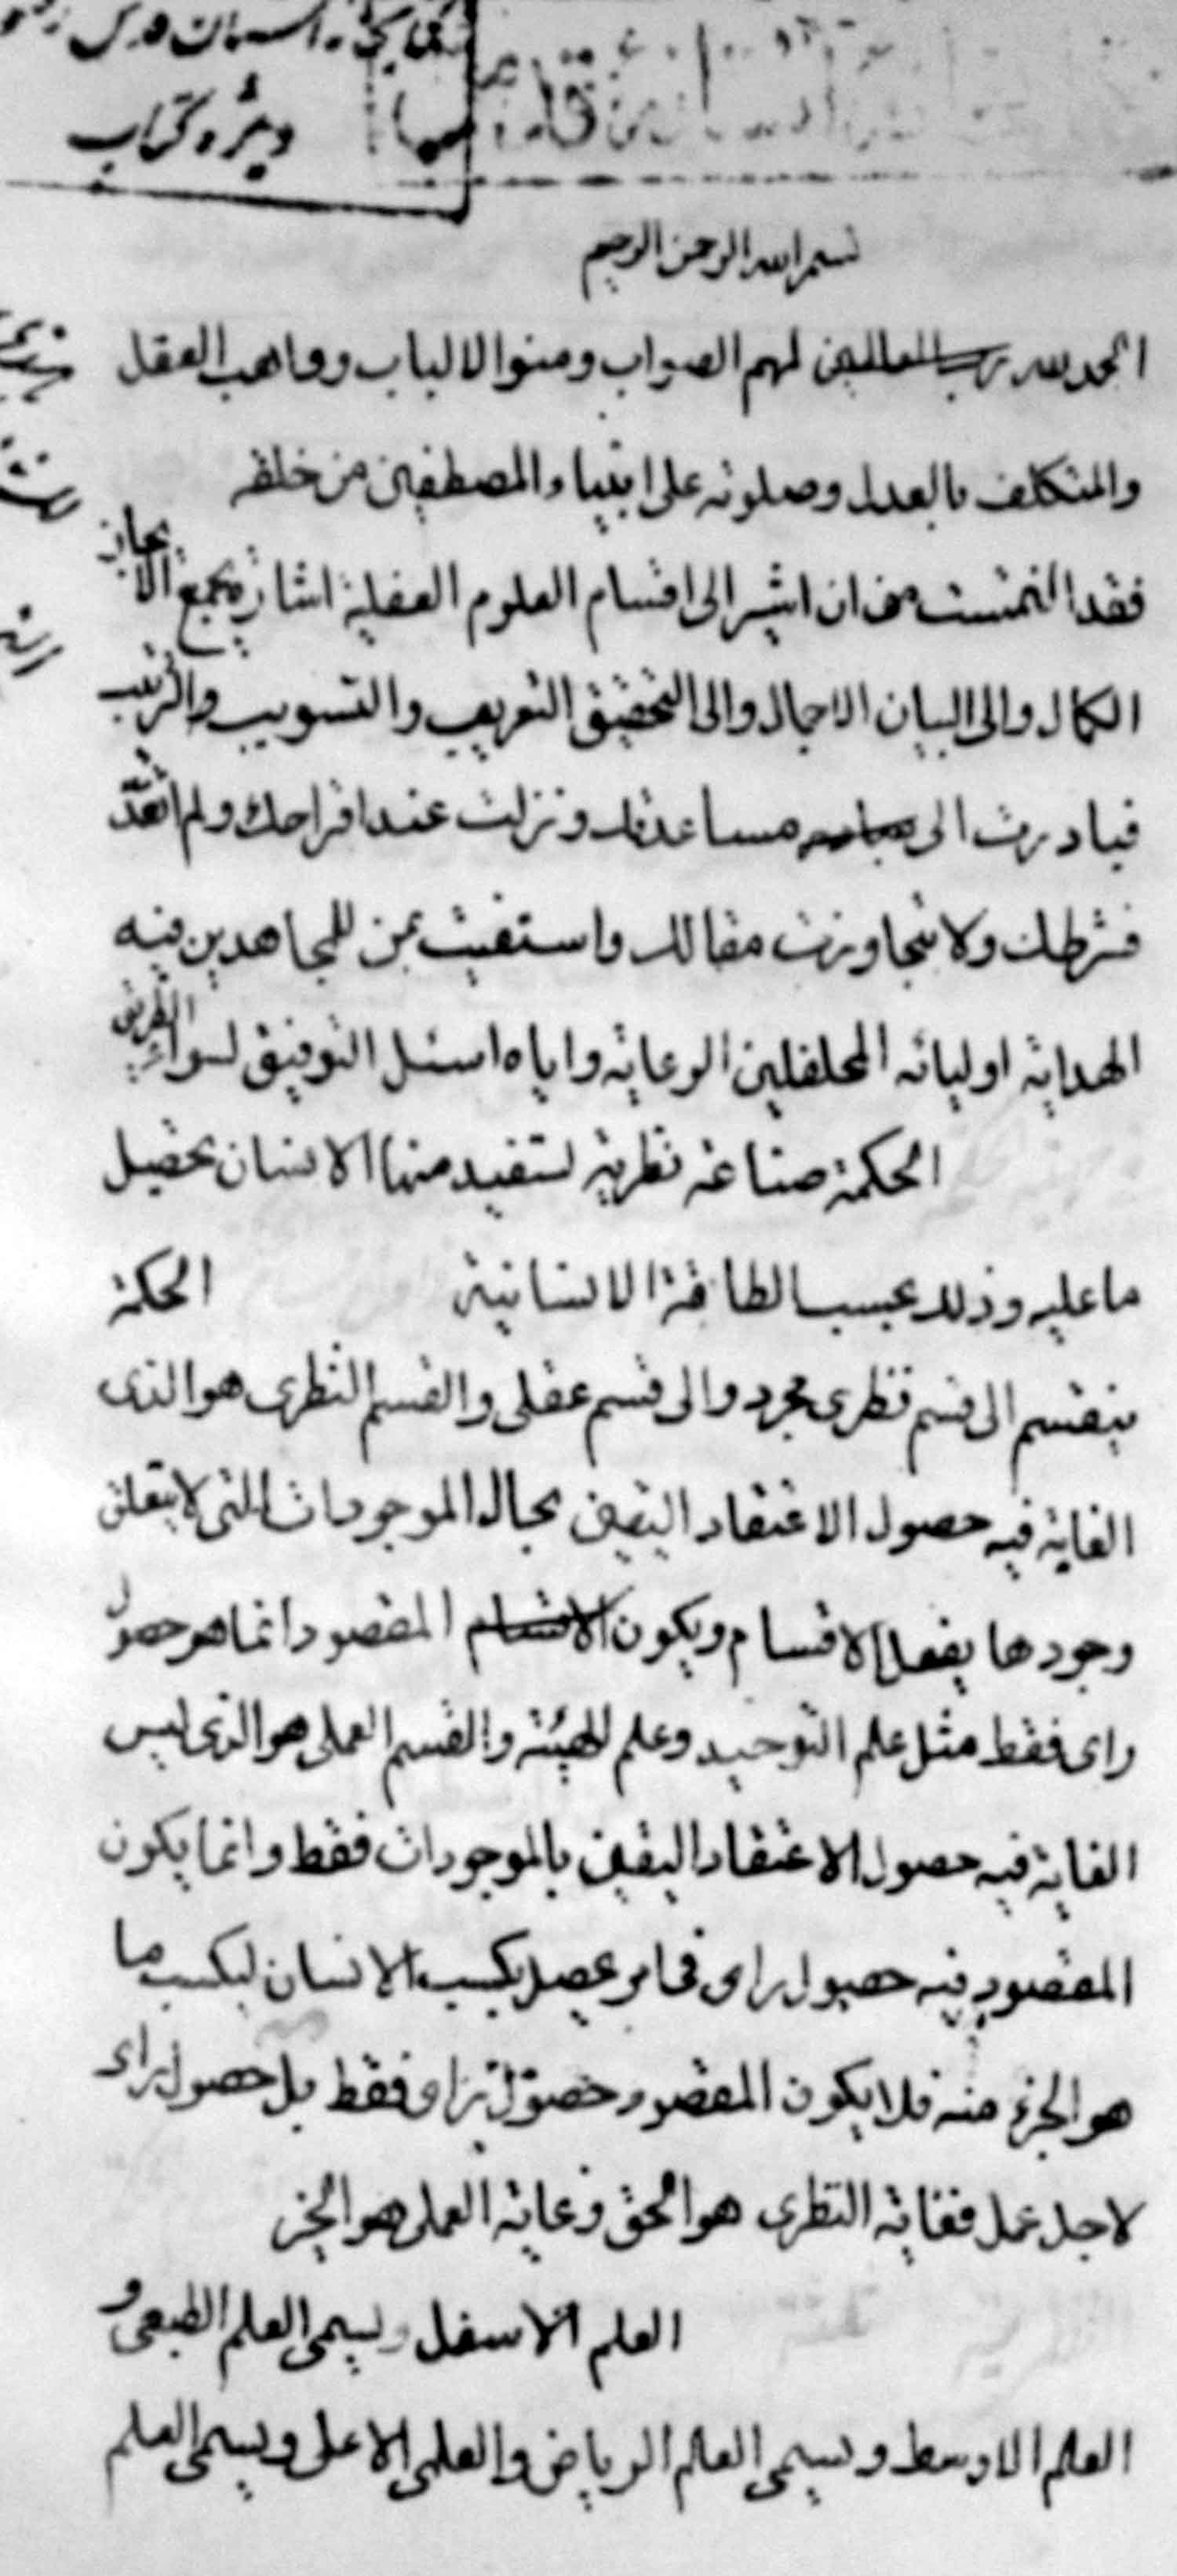 ویژه کتاب
بسم الله الرحمن الرحيم
الحمد لله رب العالمين لهم الصواب ومنوا الالباب وواهب العقل
والمتكلف بالعدل وصلوته على انبياء والمصطفين من خلقه
فقد التمست من ان اشير الى اقسام العلوم العقلية اشارة يجمع الايجاز
الكمال والى البيان الاجمال والى التحقيق التعريف والتسويب والترتيب
فبادرت الى مساعدتك ونزلت عند اقراحك ولم اتعد
فشرطك ولا تجاوزت مقالك واستغيث بمن للمجاهدين فيه
الهداية اوليائه المخلفلين الرعاية واياه اسئل التوفيق لسواء الطريق
الحكمة صناعة نظرية تستفيد منها الانسان تحصيل
ما عليه وذلك بحسب الطاقة الانسانية الحكمة
ينقسم الى قسم نظرى مجرد والى قسم عقلى والقسم النظرى هو الذى
الغاية فيه حصول الاعتقاد اليقين بحال الموجودات التى لا يتعلق
وجودها بفعل الاقسام ويكون الاقسام المقصود انما هو حصول
راى فقط مثل علم التوحيد وعلم الهيئة والقسم العملى هو الذى ليس
الغاية فيه حصول الاعتقاد اليقين بالموجودات فقط وانما يكون
المقصود فيه حصول راى فى امر يحصل بكسب الانسان ليكسب ما
هو الخير منه فلا يكون المقصود حصول راى فقط بل حصول راى
لاجل عمل فغاية النظرى هو الحق وغاية العملى هو الخير
العلم الاسفل ويسمى العلم الطبيعى و
العلم الاوسط ويسمى العلم الرياض والعلمى الاعلى ويسمى العلم